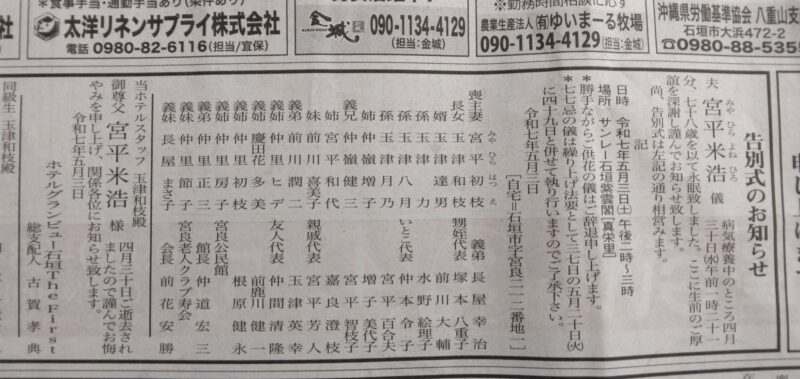 ＊食事手当・通勤手当あり(条件あり)
太洋リネンサプライ株式会社
電話 0980-82-6116(担当/宜保)
金城
090-1134-4129
(担当:金城)
※勤務時間相談に応ず
農業生産法人(有)ゆいまーる牧場
090-1134-4129
(担当:金城)
沖縄県労働基準協会 八重山支
石垣市大浜472-2
☎0980-88-535
告別式のお知らせ
夫 宮平米浩 儀
みやひら よねひろ
病気療養中のところ四月
三十日(水)午前一時二十一
分、七十八歳を以て永眠致しました。ここに生前のご厚
誼を深謝し謹んでお知らせ致します。
尚、告別式は左記の通り相営みます。
記
日時 令和七年五月三日(土)午後二時〜三時
場所 サンレー石垣紫雲閣[真栄里]
＊勝手ながらご供花の儀はご辞退申し上げます。
＊七七忌の儀は繰り上げ法要として三七日の五月二十日(火)
に四十九日と併せて執り行いますのでご了承下さい。
令和七年五月三日
[自宅=石垣市字宮良二一二番地一]
喪主妻 宮平初枝
みやひら はつえ
長女 玉津和枝
婿 玉津達男
孫 玉津力
孫 玉津八月
孫 玉津月乃
姉 仲嶺増子
義兄 仲嶺健三
姉 宮平和代
妹 前川喜美子
義弟 前川潤二
義姉 仲里ヒデ
義姉 慶田花多美
義姉 仲里初枝
義弟 仲里正三
義妹 仲里節子
義妹 長屋まさ子
義弟 長屋幸治
甥姪代表 塚本八重子
前川大輔
水野絵理子
いとこ代表 仲本令子
宮平百合夫
増子美代子
宮平智枝子
嘉良澄枝
親戚代表 宮平芳人
玉津英幸
友人代表 仲間清隆
前鹿川健一
根原健永
宮良公民館
館長 仲道宏三
宮良老人クラブ寿会
会長 前花安勝
当ホテルスタッフ 玉津和枝殿
御尊父 宮平米浩 様
四月三十日ご逝去され
ましたので謹んでお悔
やみを申し上げ、関係各位にお知らせ致します。
令和七年五月三日
ホテルグランビュー石垣The First
総支配人 古賀孝典
同級生 玉津和枝殿